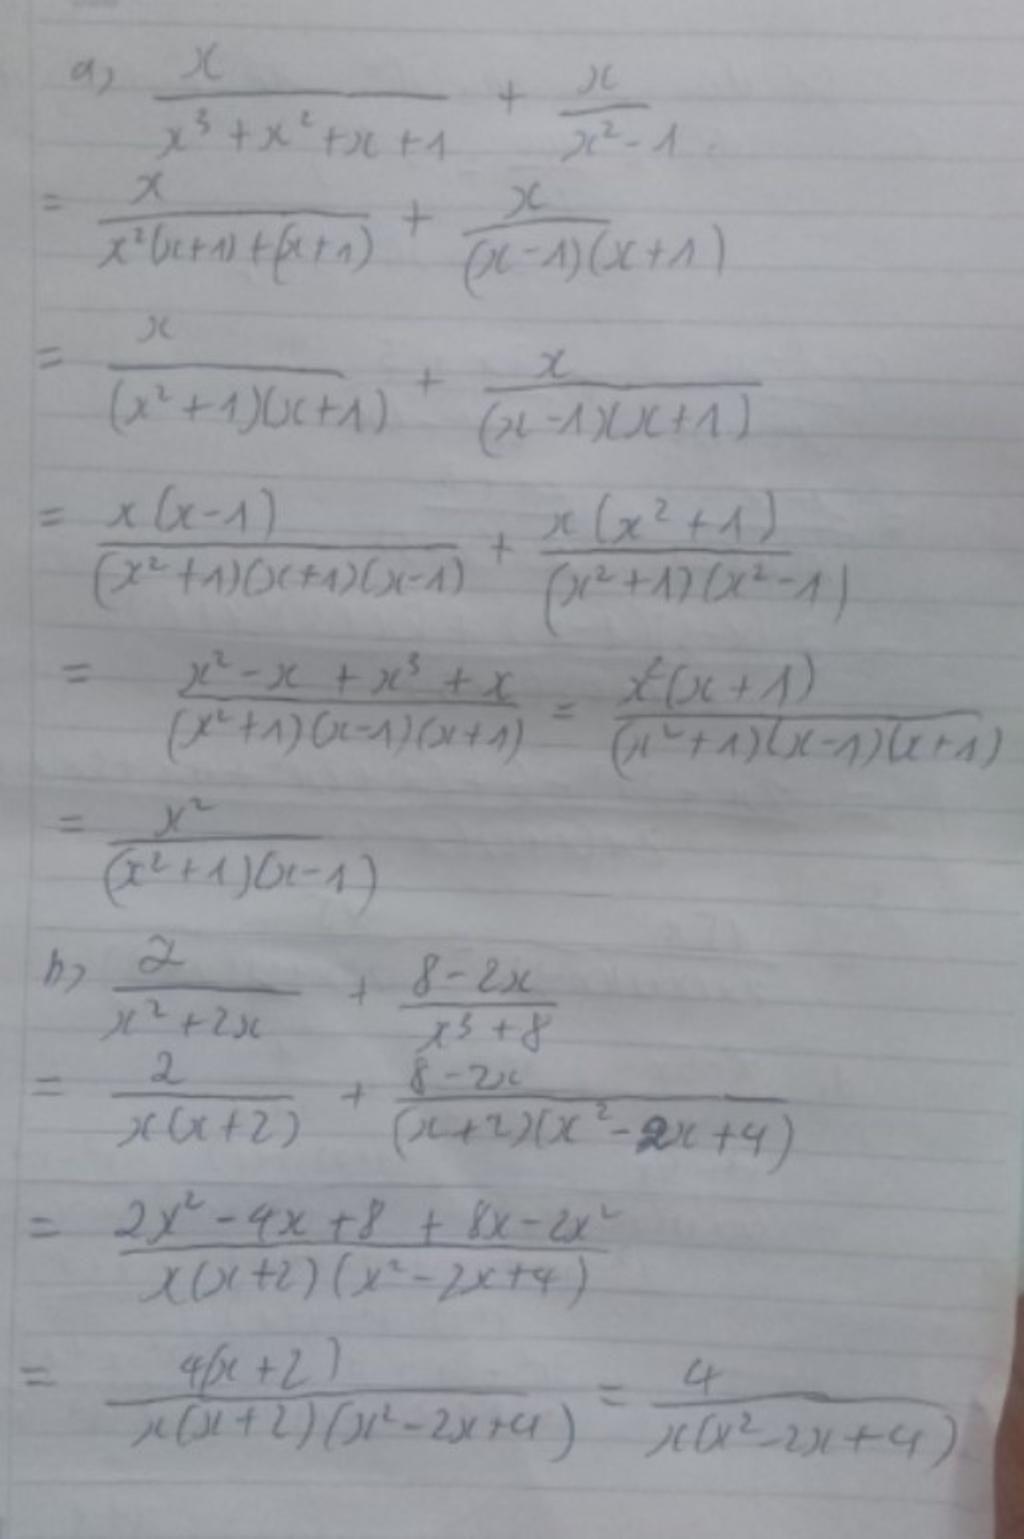 a) x/(x³ + x² + x + 1) + x/(x² - 1)
= x/(x²(x+1) + (x+1)) + x/((x-1)(x+1))
= x/((x²+1)(x+1)) + x/((x-1)(x+1))
= x(x-1)/((x²+1)(x+1)(x-1)) + x(x²+1)/((x²+1)(x²-1))
= (x² - x + x³ + x)/((x²+1)(x-1)(x+1)) = x²(x+1)/((x²+1)(x-1)(x+1))
= x²/((x²+1)(x-1))
b) 2/(x² + 2x) + (8 - 2x)/(x³ + 8)
= 2/(x(x+2)) + (8 - 2x)/((x+2)(x² - 2x + 4))
= (2x² - 4x + 8 + 8x - 2x²)/(x(x+2)(x² - 2x + 4))
= 4(x+2)/(x(x+2)(x² - 2x + 4)) = 4/(x(x² - 2x + 4))